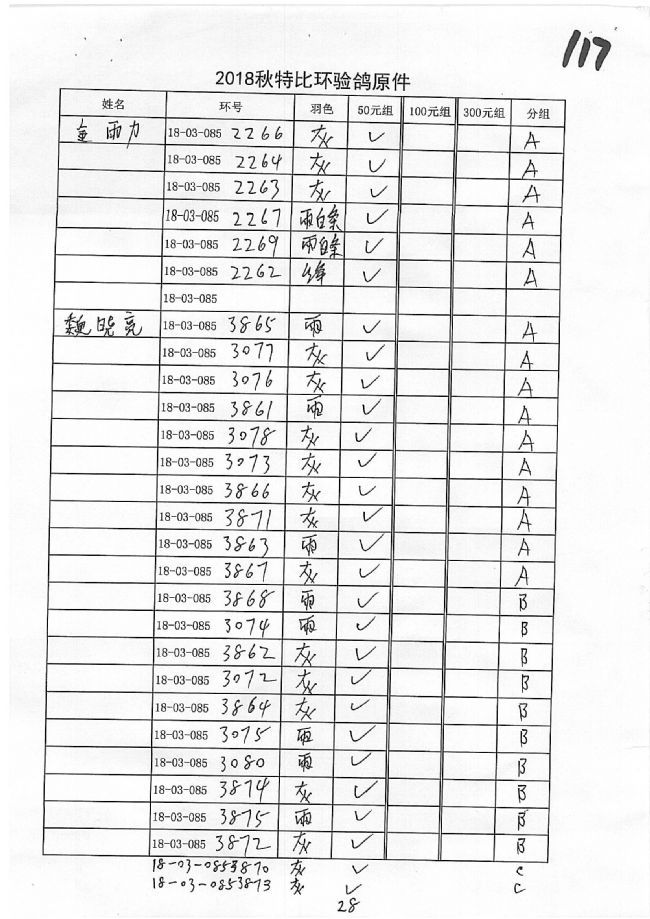 117
2018秋特比环验鸽原件
姓名 环号 羽色 50元组 100元组 300元组 分组
金雨力 18-03-085 2266 灰 ✓ A
18-03-085 2264 灰 ✓ A
18-03-085 2263 灰 ✓ A
18-03-085 2267 雨白条 ✓ A
18-03-085 2269 雨白条 ✓ A
18-03-085 2262 绛 ✓ A
18-03-085
魏晓亮 18-03-085 3865 雨 ✓ A
18-03-085 3077 灰 ✓ A
18-03-085 3076 灰 ✓ A
18-03-085 3861 雨 ✓ A
18-03-085 3078 灰 ✓ A
18-03-085 3073 灰 ✓ A
18-03-085 3866 灰 ✓ A
18-03-085 3871 灰 ✓ A
18-03-085 3863 雨 ✓ A
18-03-085 3867 灰 ✓ A
18-03-085 3868 雨 ✓ B
18-03-085 3074 雨 ✓ B
18-03-085 3862 灰 ✓ B
18-03-085 3072 灰 ✓ B
18-03-085 3864 灰 ✓ B
18-03-085 3075 雨 ✓ B
18-03-085 3080 雨 ✓ B
18-03-085 3874 灰 ✓ B
18-03-085 3875 雨 ✓ B
18-03-085 3872 灰 ✓ B
18-03-0853870 灰 ✓ C
18-03-0853873 灰 ✓ C
28